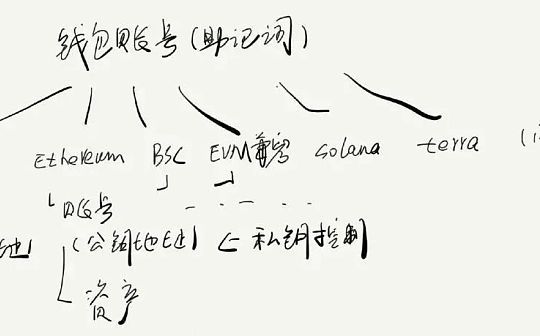 钱包账号(助记词)
Ethereum BSC EVM兼容 solana terra
账号 - . . . .
(公钥地址) ← 私钥控制
资产